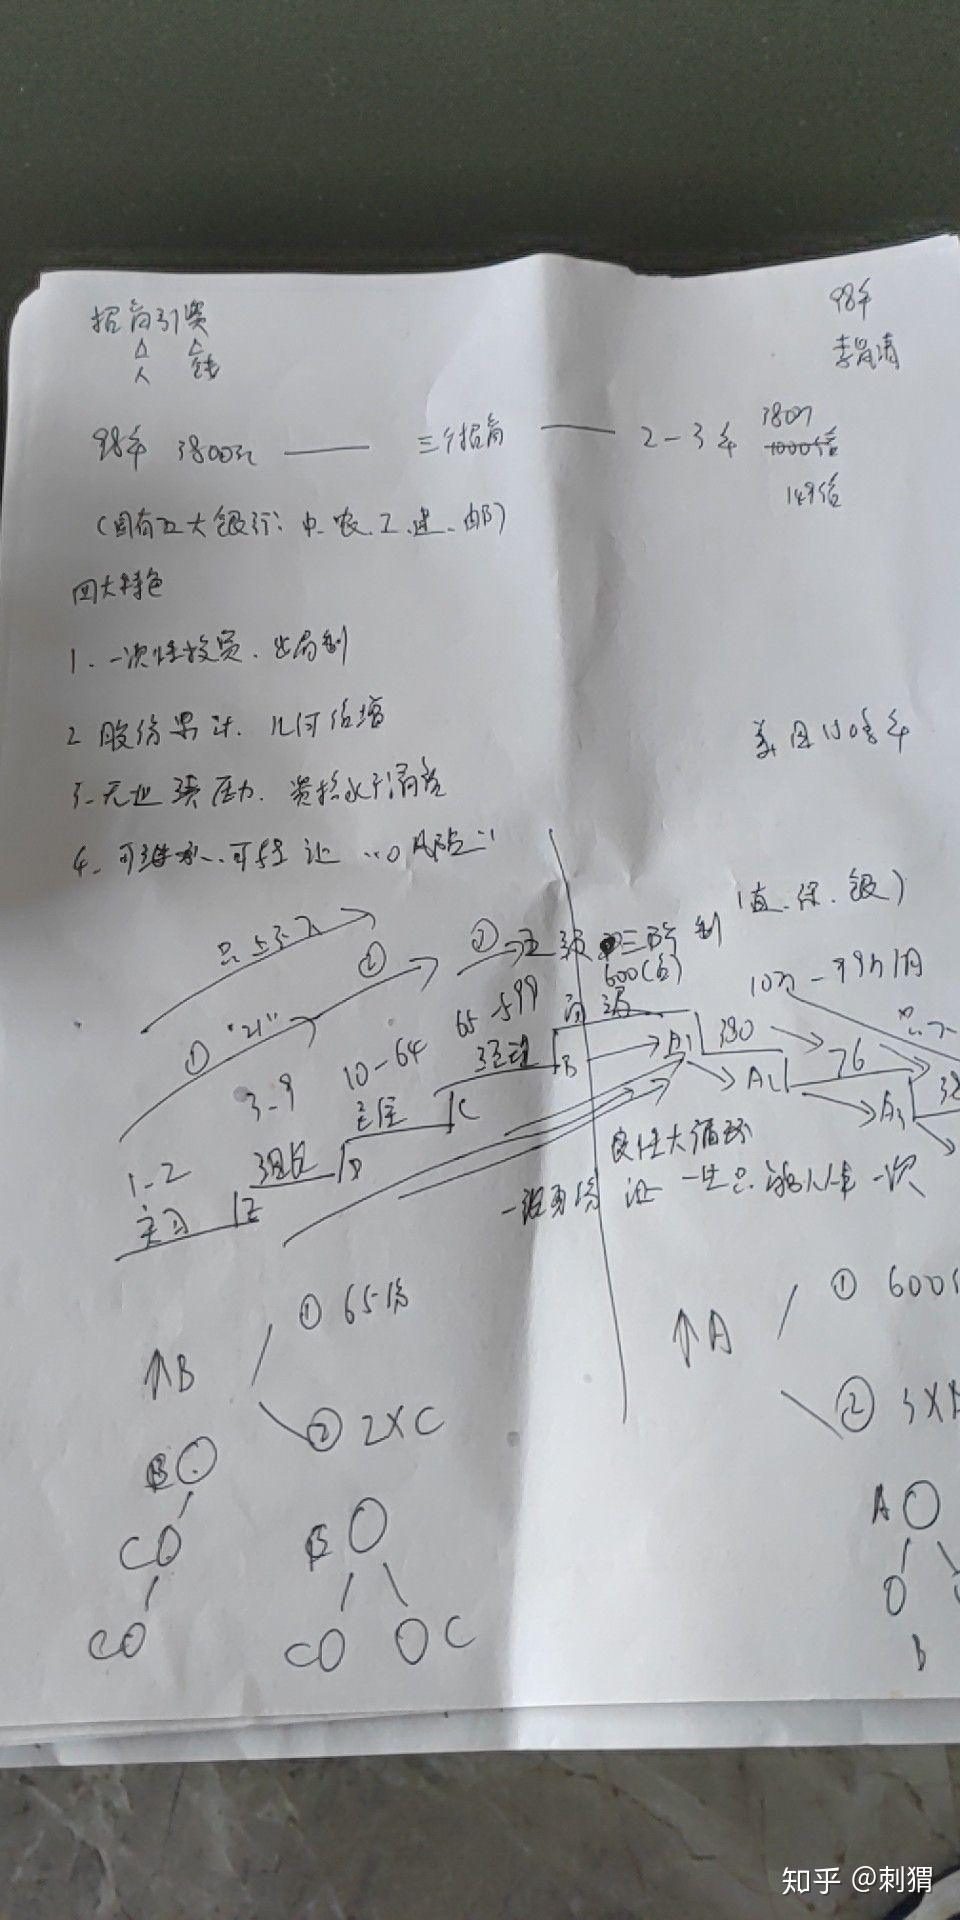 招商引资
人 钱
98年
李昌清
98年 3800元 —— 三个招商 —— 2-3年 380万
1000倍
149倍
(国有五大银行: 中.农.工.建.邮)
四大特色
1. 一次性投资. 出局制
2 股份累计. 几何倍增
3. 无业绩压力. 资格永不清零
4. 可继承. 可转让 "0风险"
只上不下
五级三阶制 (直.保.银)
① "21" ② ②
600(份)
10万-99万/月
1-2 3-9 10-64 65-599
实习 组长 主任 经理
E D C B A1 380
A2 76
A3 38
只下
良性大循环
一生只能从事一次
↑B ① 65份
② 2XC
↑A ① 600
② 3X
B
C
C
B
C C
A
B
知乎 @刺猬